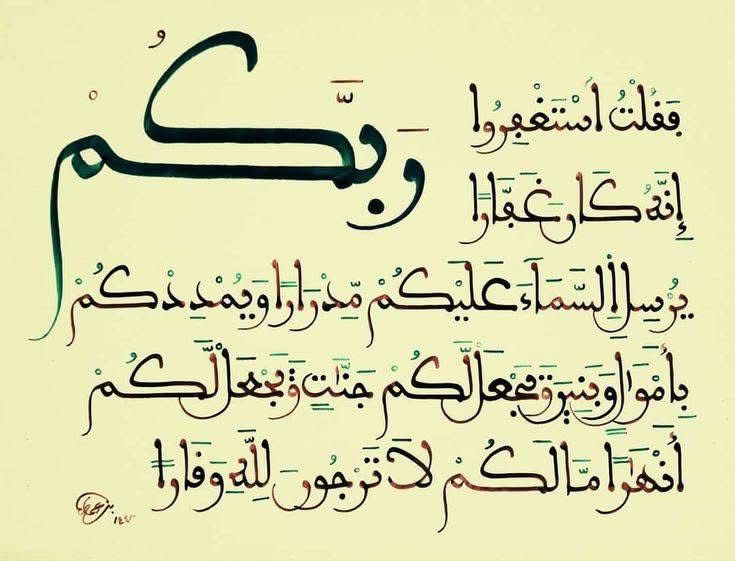 فَقُلْتُ اُسْتَغْفِرُوا
رَبَّكُمْ
إِنَّهُ كَانَ غَفَّارًا
يُرْسِلِ السَّمَآءَ عَلَيْكُمْ مِّدْرَارًا وَيُمْدِدْكُمْ
بِأَمْوَالٍ وَبَنِينَ وَيَجْعَل لَّكُمْ جَنَّاتٍ وَيَجْعَل لَّكُمْ
أَنْهَارًا مَّا لَكُمْ لَا تَرْجُونَ لِلَّهِ وَقَارًا